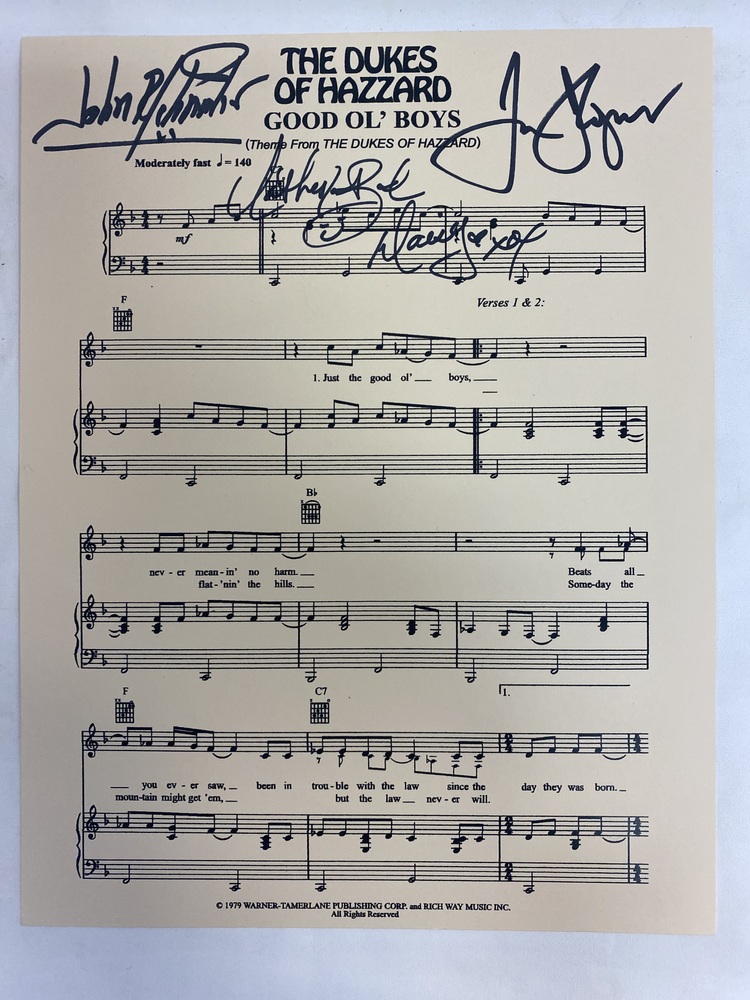 THE DUKES
OF HAZZARD
GOOD OL' BOYS
(Theme From THE DUKES OF HAZZARD)
John Schneider
Tom Wopat
Catherine Bach
Daisy xox
Moderately fast ♩= 140
mf
Verses 1 & 2:
F
1. Just the good ol' boys,
B♭
nev - er mean - in' no harm. Beats all
flat - 'nin' the hills. Some-day the
1.
F C7
you ev - er saw, been in trou - ble with the law since the day they was born.
moun-tain might get 'em, but the law nev - er will.
© 1979 WARNER-TAMERLANE PUBLISHING CORP. and RICH WAY MUSIC INC.
All Rights Reserved